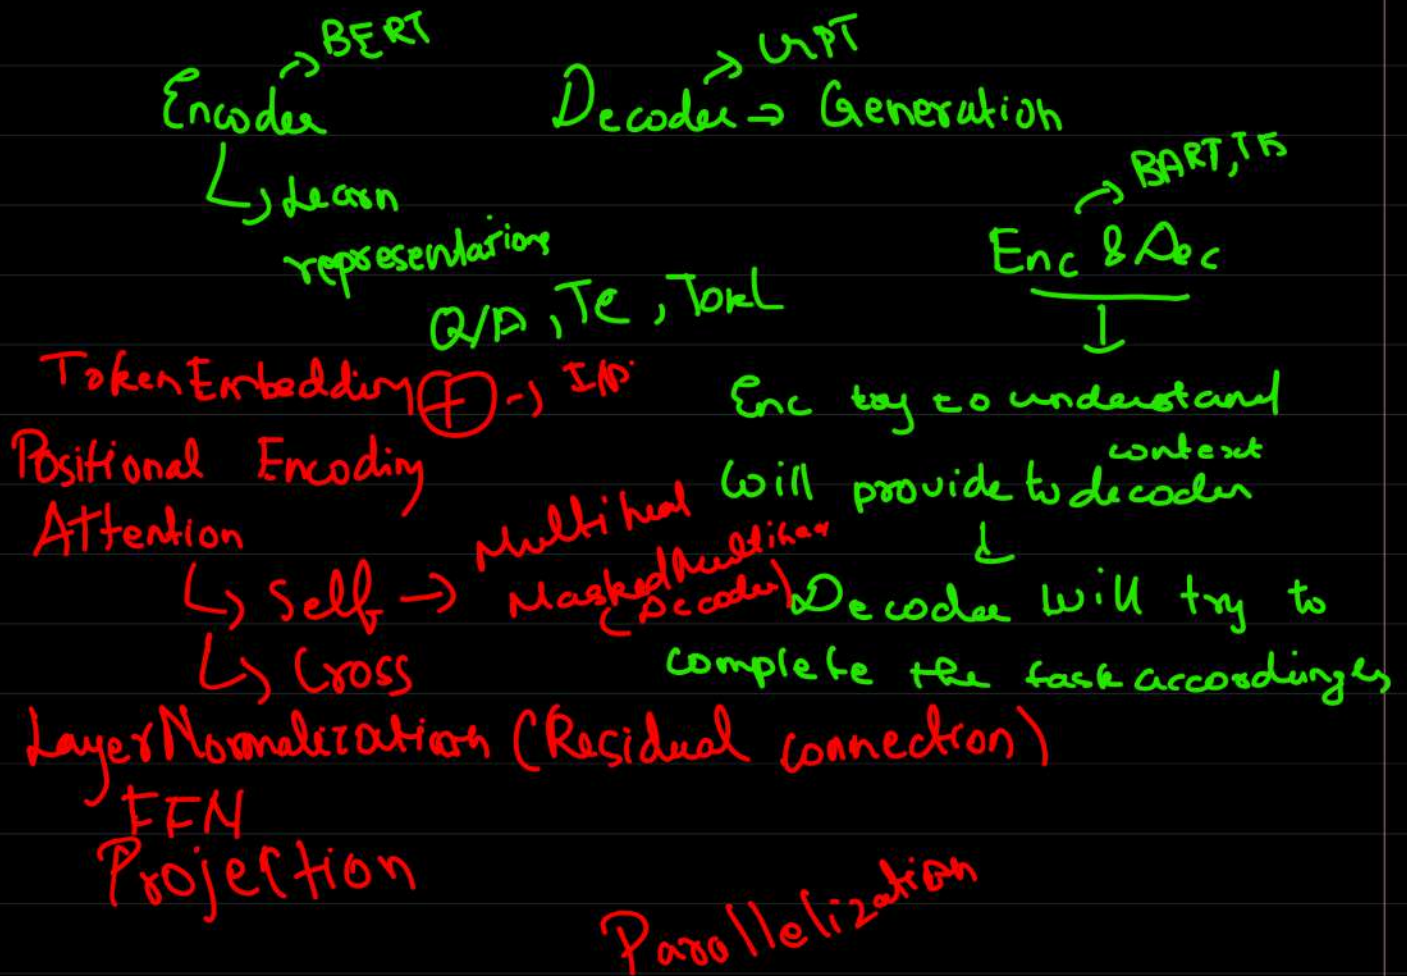 Encoder → BERT
↳ Learn
representations
Decoder → Generation
→ GPT
Q/A, TC, TokL
Enc & Dec → BART, T5
↓
Enc try to understand
context
will provide to decoder
↓
Decoder will try to
complete the task accordingly
Token Embedding ⊕ → I/P
Positional Encoding
Attention
↳ Self → Multihead
Masked Multihead
(Decoder)
↳ Cross
Layer Normalization (Residual connection)
FFN
Projection
Parallelization